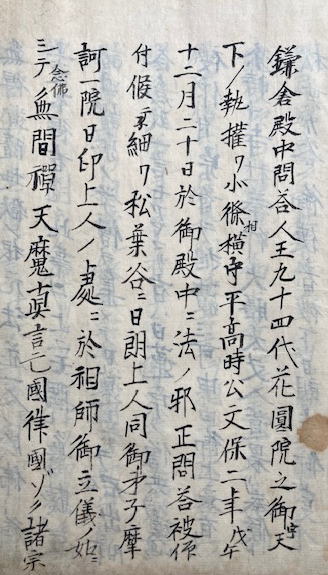 鎌倉殿中問荅人王九十四代花園院之御宇天
下ノ執權ヲ小條相模守平高時公文保二年戊午
十二月二十日於御殿中ニ法ノ邪正問荅被仰
付候委細ヲ松葉谷ニ日朗上人同御弟子摩
訶一院日印上人ノ処ニ於祖師御立儀ノ始ニ
シテ念佛無間禪天魔真言亡國律國ゾク諸宗